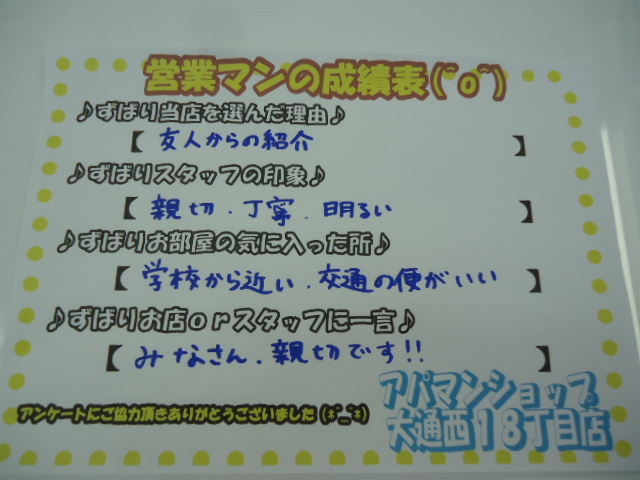 営業マンの成績表(^o^)
♪ずばり当店を選んだ理由♪
【 友人からの紹介 】
♪ずばりスタッフの印象♪
【 親切.丁寧.明るい 】
♪ずばりお部屋の気に入った所♪
【 学校から近い.交通の便がいい 】
♪ずばりお店orスタッフに一言♪
【 みなさん.親切です!! 】
アンケートにご協力頂きありがとうございました(*^_^*)
アパマンショップ
大通西18丁目店